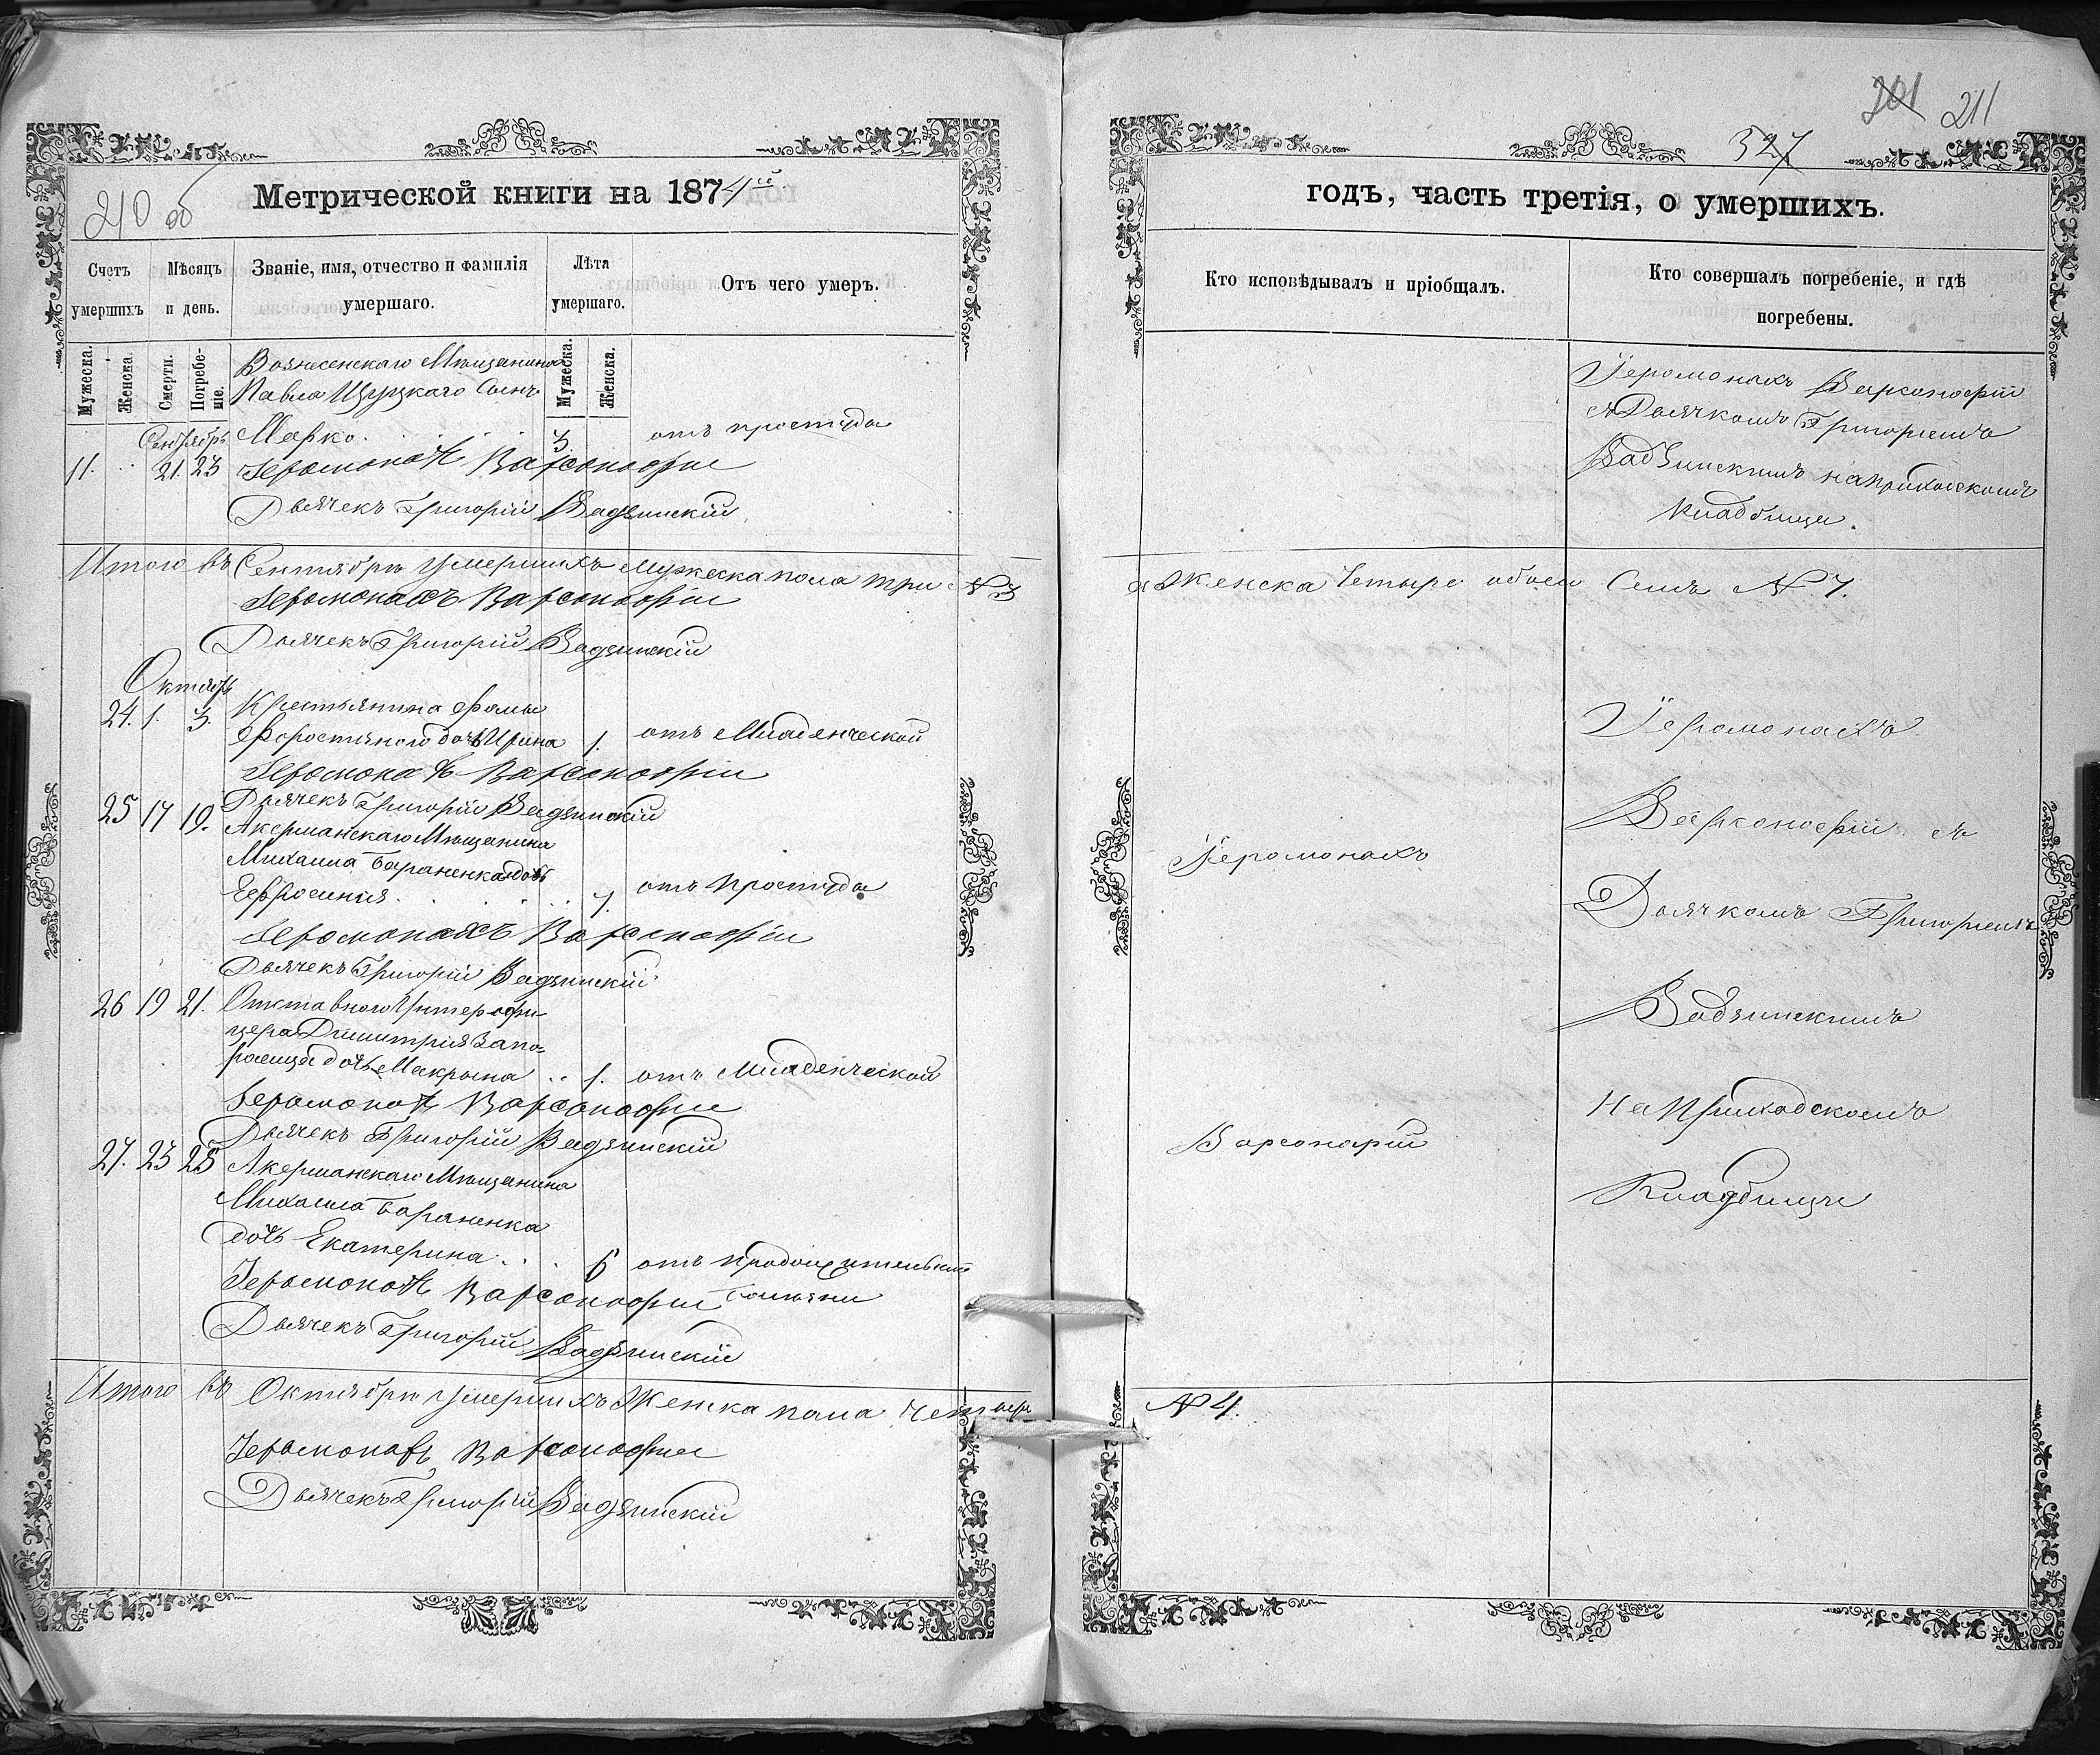 210 об
Метрической книги на 1874ый
Счетъ умершихъ
Мѣсяцъ и день.
Званіе, имя, отчество и фамилія умершаго.
Лѣта умершаго.
Отъ чего умеръ.
Мужеска.
Женска.
Смерти.
Погребе-
ніе.
Мужеска.
Женска.
Вознесенскаго Мѣщанина
Павла Щуцкаго Сынъ
Сентябрь
Марко
3
отъ простуды
11.
21.
23
Іеромонахъ Варсонофіи
Дьячекъ Григорій Вадзинскій
Итого въ Сентябрѣ умершихъ мужеска пола три №3
Іеромонахъ Варсонофіи
Дьячекъ Григорій Вадзинскій
Октябрь
24. 1. 3. Крестьянина Фомы
Форостяного дочь Ирина 1. отъ Младенческой
Іеромонахъ Варсонофіи
Дьячекъ Григорій Вадзинскій
25 17 19. Акерманскаго Мѣщанина
Михаила Бараненка дочь
Ефросинія 7. отъ простуды
Іеромонахъ Варсонофіи
Дьячекъ Григорій Вадзинскій
26 19 21. Отставного Унтеръ-офи-
цера Димитрія Запо-
рожца дочь Макрына 1. отъ Младенческой
Іеромонахъ Варсонофіи
Дьячекъ Григорій Вадзинскій
27. 23 25 Акерманскаго Мѣщанина
Михаила Бараненка
дочь Екатерина 6 отъ продолжительной
болѣзни
Іеромонахъ Варсонофіи
Дьячекъ Григорій Вадзинскій
Итого въ Октябрѣ умершихъ Женска пола Четыре
Іеромонахъ Варсонофіи
Дьячекъ Григорій Вадзинскій
201 211
327
годъ, часть третія, о умершихъ.
Кто исповѣдывалъ и пріобщалъ.
Кто совершалъ погребеніе, и гдѣ
погребены.
Іеромонахъ Варсонофій
съ Дьячкомъ Григоріемъ
Вадзинскимъ на приходскомъ
кладбищи.
а Женска Четыре обоего Семь №7.
Іеромонахъ
Варсонофій съ
Іеромонахъ
Дьячкомъ Григоріемъ
Вадзинскимъ
На Приходскомъ
Варсонофій
Кладбищи
№4.